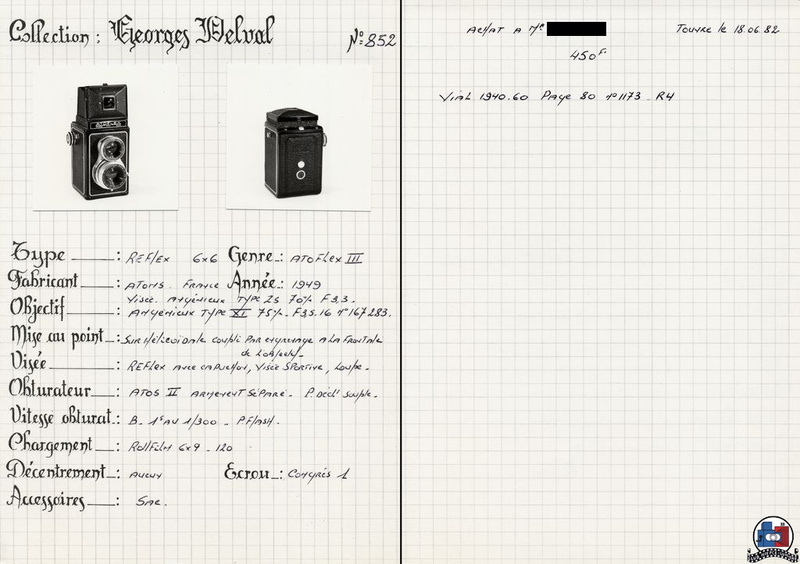 Collection : Georges Delval N°: 852
Type : REFlex 6x6 Genre : ATOFlex III
Fabricant : ATOMS. FRANCE Année : 1949
Visée. Angénieux TYPE Z5 70% F3,3.
Objectif : ANgénieux TYPE XI 75%. F3,5.16 n°167283.
Mise au point : Sur Hélicoïdale couplé Par engrenage A LA FronTale
de L'objectif.
Visée : REFlex avec capuchon, Visée SPortive, Loupe.
Obturateur : ATOS II ARMEMENT SéPARé. P. Décl' souple.
Vitesse obturat. : B. 1s AU 1/300 - P. FlAsh.
Chargement : RollFilm 6x9 - 120
Décentrement : AUCUN Ecrou : CONGRès 1
Accessoires : SAC.
AchAT A Mr
450 Fr.
Touvre le 18.06.82
ViAL 1940.60 Page 80 n°1173 - R4